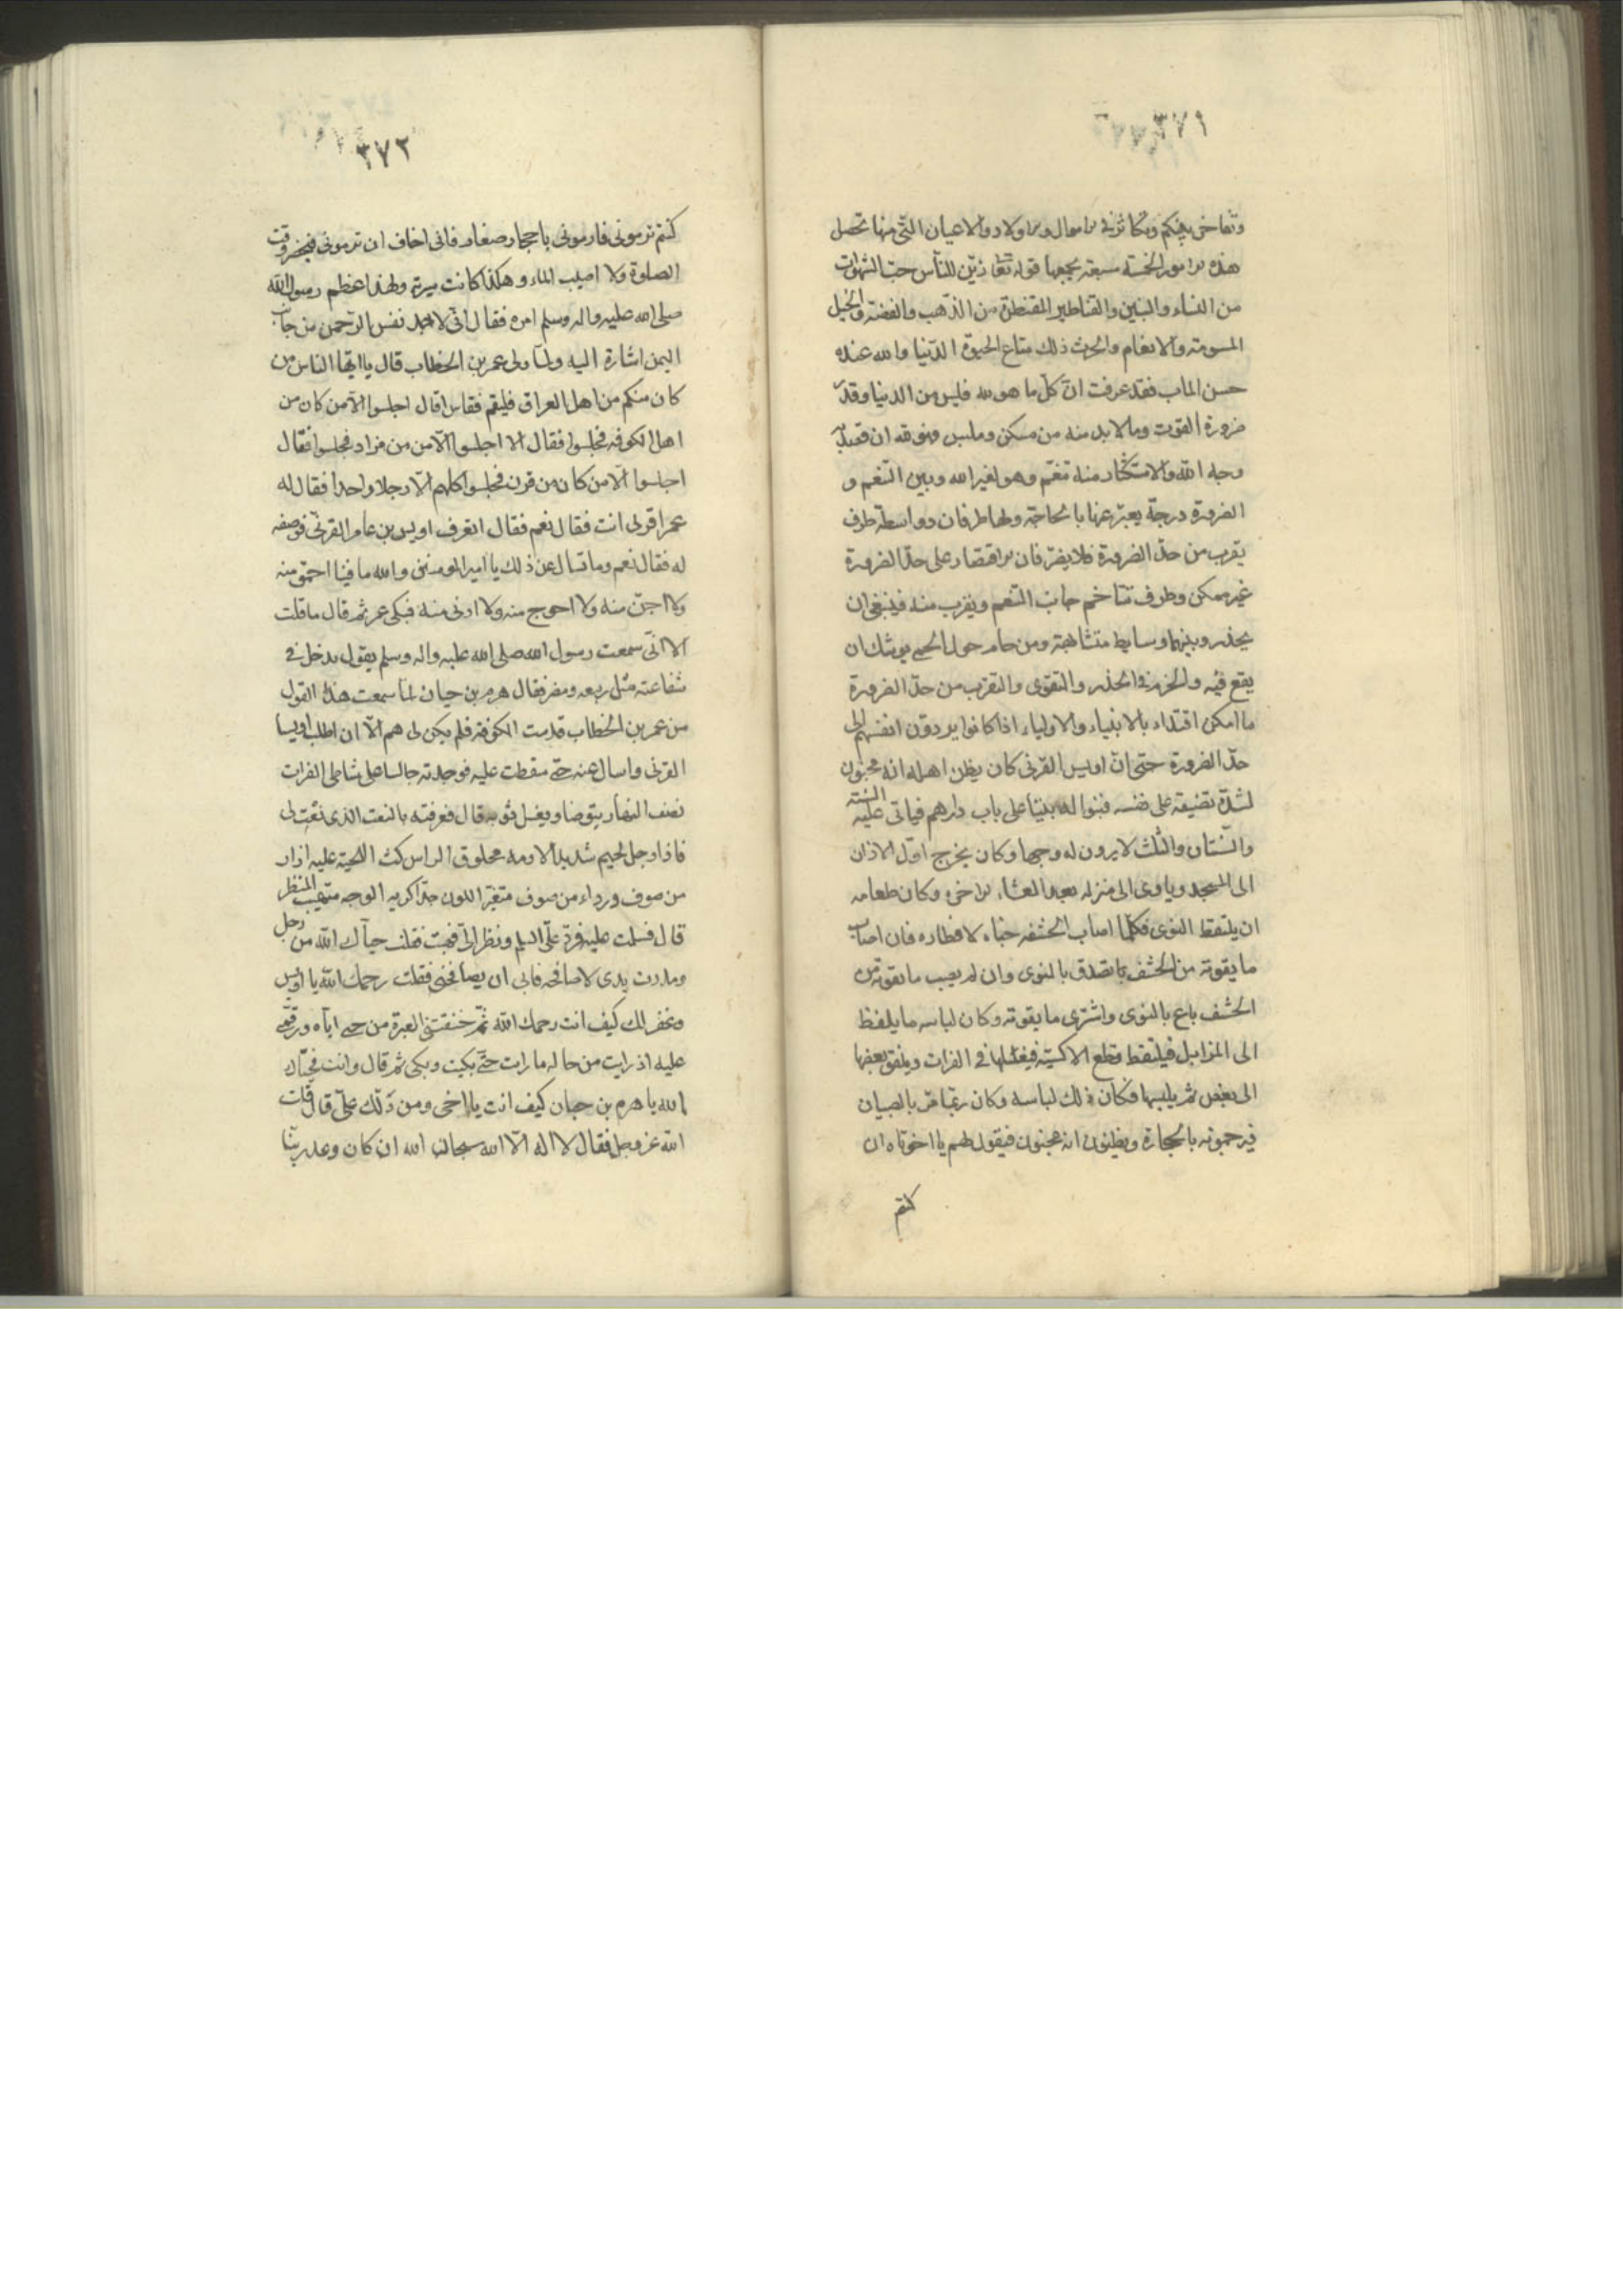 ٣٧١
وتفاخر بينكم وتكاثر في الاموال والاولاد والاعيان التي منها تحصل
هذه الامور الخمسة سبعة يجمعها قوله تعا زين للناس حب الشهوات
من النساء والبنين والقناطير المقنطرة من الذهب والفضة والخيل
المسومة والانعام والحرث ذلك متاع الحيوة الدنيا والله عنده
حسن الماب فقد عرفت ان كل ما هو لله فليس من الدنيا وقدر
ضرورة القوت وما لا بد منه من مسكن وملبس هو لله ان قصد به
وجه الله والاستكثار منه تنعم وهو لغير الله وبين التنعم و
الضرورة درجة يعبر عنها بالحاجة ولها طرفان وواسطة طرف
يقرب من حد الضرورة فلا يضر فان الاقتصار على حد الضرورة
غير ممكن وطرف تتاخم جانب التنعم ويقرب منه فينبغي ان
يحذر وبينهما وسايط متشابهة ومن حام حول الحمى يوشك ان
يقع فيه والحزم في الحذر والتقوى والتقرب من حد الضرورة
ما امكن اقتداء بالانبياء والاولياء اذا كانوا يردون انفسهم الى
حد الضرورة حتى ان اويس القرني كان يظن اهله انه مجنون
لشدة تضيقه على نفسه فبنوا له بيتا على باب دارهم فياتى عليه السنة
والسنتان والثلث لا يرون له وجها وكان يخرج اول الاذان
الى المسجد وياوى الى منزله بعد العشاء الاخرة وكان طعامه
ان يلتقط النوى فكلما اصاب الحشفه خباه لافطاره فان اصاب
ما يقوته من الحشف تصدق بالنوى وان لم يصب ما يقوته من
الحشف باع بالنوى واشترى ما يقوته وكان لباسه ما يلفظ
الى المزابل فيلتقط قطع الاكسية فيغسلها في الفرات ويلفق بعضها
الى بعض ثم يلبسها فكان ذلك لباسه وكان ربما مر بالصبيان
فيرجمونه بالحجارة ويظنون انه مجنون فيقول لهم يا اخوتاه ان
كنتم
٣٧٢
كنتم ترمونى فارمونى باحجار صغار فانى اخاف ان ترمونى فيحضر وقت
الصلوة ولا اصيب الماء وهكذا كانت سيرته ولهذا اعظم رسول الله
صلى الله عليه واله وسلم امره فقال انى لاجد نفس الرحمن من جانب
اليمن اشارة اليه ولما ولى عمر بن الخطاب قال يا ايها الناس من
كان منكم من اهل العراق فليقم فقاس اقال اجلسوا الا من كان من
اهل الكوفه فجلسوا فقال الا اجلسوا الا من من مراد فجلسوا فقال
اجلسوا الا من كان من قرن فجلسوا كلهم الا رجلا واحدا فقال له
عمر اقرنى انت فقال نعم فقال اتعرف اويس بن عامر القرنى فوصفه
له فقال نعم وما تسال عن ذلك يا امير المومنين والله ما فينا احمق منه
ولا اجن منه ولا احوج منه ولا ادنى منه فبكى عمر ثم قال ما قلت
الا انى سمعت رسول الله صلى الله عليه واله وسلم يقول يدخل في
شفاعته مثل ربيعه ومضر فقال هرم بن حيان لما سمعت هذا القول
من عمر بن الخطاب قدمت الكوفة فلم يكن لى هم الا ان اطلب اويسا
القرنى واسال عنه حتى سقطت عليه فوجدته جالسا على شاطى الفرات
نصف النهار يتوضا ويغسل ثوبه قال فعرفته بالنعت الذى نعت لى
فاذا رجل لحيم شديد الادمة محلوق الراس كث اللحية عليه ازار
من صوف ورداء من صوف متغير اللون جدا كريه الوجه متهيب المنظر
قال فسلمت عليه فرد على السلم ونظر الى فقلت حياك الله من رجل
ومددت يدى لاصافحه فابى ان يصافحنى فقلت رحمك الله يا اويس
وغفر لك كيف انت رحمك الله ثم خنقتنى العبرة من حبى اياه ورقتى
عليه اذ رايت من حاله ما رايت حتى بكيت وبكى ثم قال وانت فحياك
الله يا هرم بن حيان كيف انت يا اخى ومن دلك على قال قلت
الله عز وجل فقال لا اله الا الله سبحان الله ان كان وعد ربنا